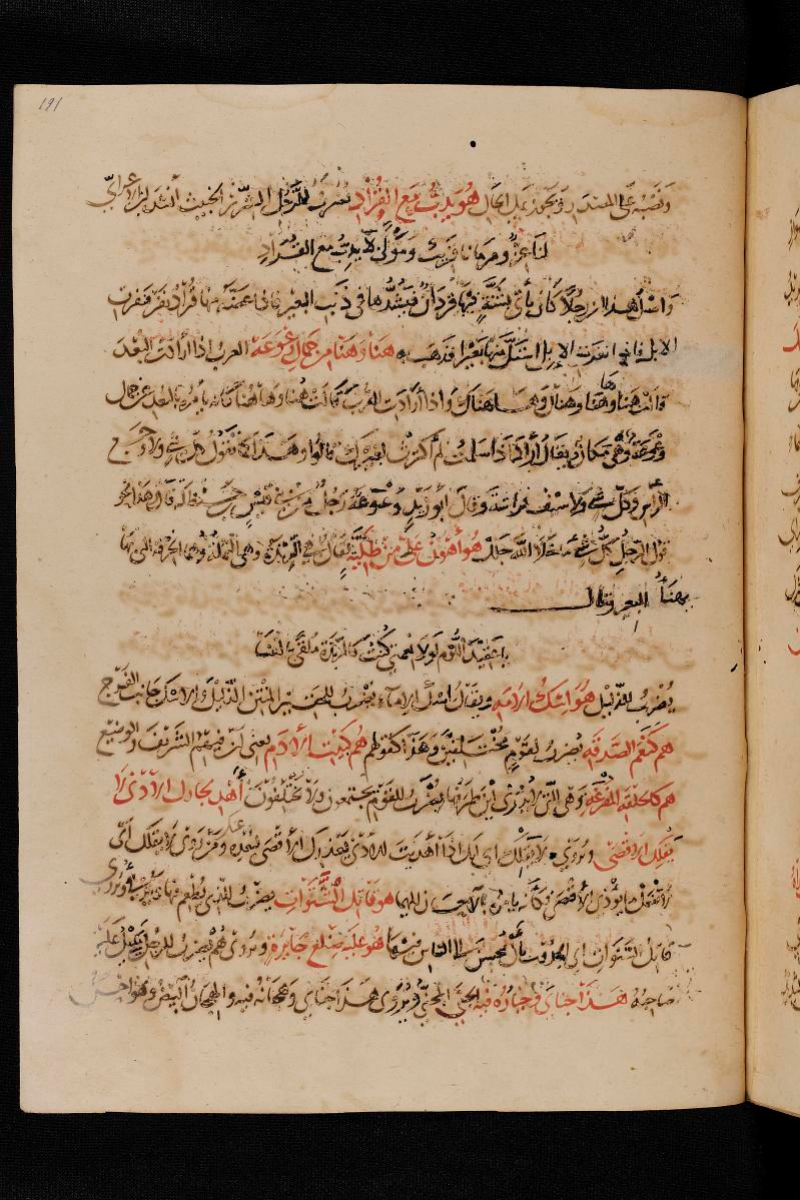 191
ونصبه على المصدر ويجوز على الحال هو يدب مع القراد يضرب للرجل الشرير الخبيث أنشد ابن الاعرابي
لنا عز ومرمانا قريب ومولى لا يدب مع القراد
واصل هذا ان رجلا كان يأتي بشنة فيها قردان فيشدها في ذنب البعير فاذا عضه منها قراد نفر فنفرت
الابل فاذا نفرت الابل استل منها بعيرا فذهب به هنا وهنا من جمال وعوعة العرب اذا ارادت البعد
قالت هنا وههنا وهناك وههناك واذا ارادت القرب قالت هنا وهاهنا كانه يأمره بالبعد عن جمال
وعوعة وهي مكان ويقال اراد اذا سلمت لم اكترث لغيرك قالوا وهذا كما تقول كل شيء ولا وجع
الراس وكل شيء ولا سيف فراشة وقال ابو زيد وعوعة رجل من بني قيس حنظلة قال هذا نحو
قول الرجل كل شيء ما خلا الله جلل هو اهون علي من طلية يقال هي الربذة وهي الثملة وهما الخرقة التي يهنا
بهنا البعير وقال
يا عقيد اللؤم لولا نعمتي كنت كالربذة ملقى بالفنا
يضرب للذليل هو اسك الامة ويقال اسك الاماء يضرب للحقير المنتن الذليل والاسك جانب الفرج
هم كنعم الصدقة يضرب لقوم مختلفين وهذا كقولهم هم كبيت الادم يعني ان فيهم الشريف والوضيع
هم كالحلقة المفرغة وهي التي لا يدرى اين طرفها يضرب للقوم يجتمعون ولا يختلفون أهد لجارك الادنى لا
يقلك الاقصى ويروى لا يقلك اي انك اذا اهديت للادنى يعذرك الاقصى لبعده عنك ومن روى لا يقلك اي
لا تفعل ما يؤذي الاقصى وكانه يامره بالاحسان اليهما هو قاتل الشتوات يضرب للذي يطعم فيها ويدفئ ويروى
قاتل السنوات اي الجدوب بأن يحسن الى الناس فيها هو علي ضلع جائرة ويروى هم يضرب للرجل يميل عليه
صاحبه هذا جناي وخياره فيه الجنى المجني ويروى هذا جناي وهجانه فيه والهجان البيض وهو احسن